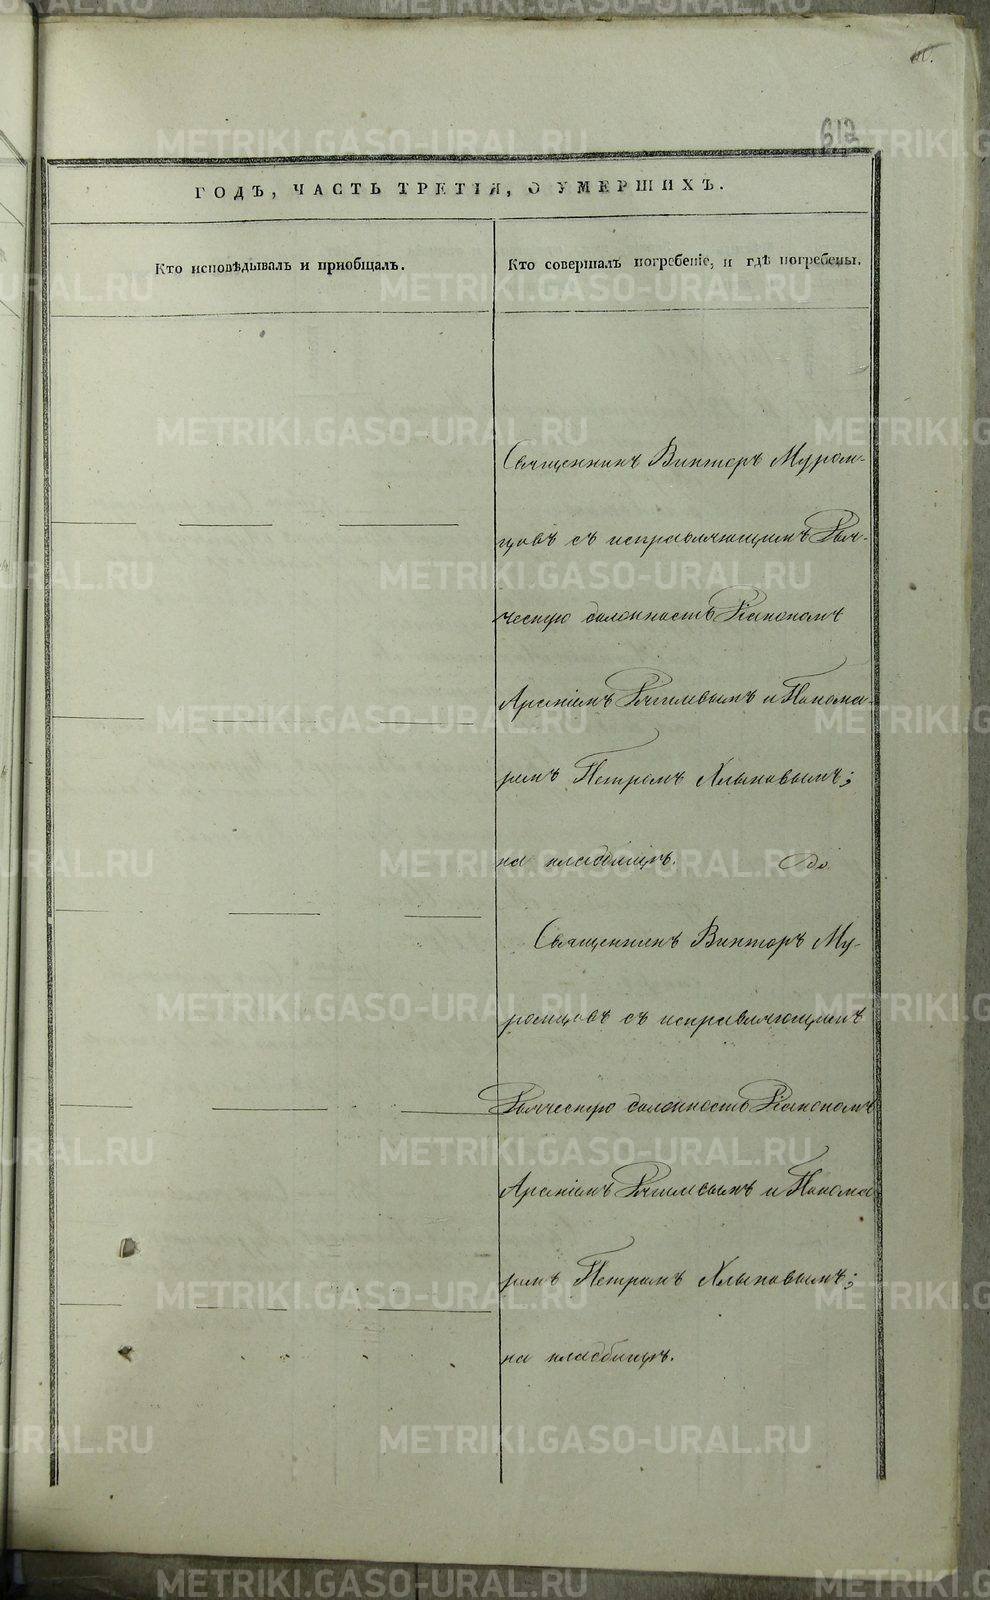 617
ГОДЪ, ЧАСТЬ ТРЕТІЯ, О УМЕРШИХЪ.
Кто исповѣдывалъ и пріобщалъ.
Кто совершалъ погребеніе, и гдѣ погребены.
Священникъ Викторъ Муром-
цовъ съ исправляющимъ Дья-
ческую должность Діакономъ
Арсеніемъ и Понома-
ремъ Петромъ Хлыновымъ;
на кладбищѣ.
Священникъ Викторъ Му-
ромцовъ съ исправляющимъ
Дьяческую должность Діакономъ
Арсеніемъ и Понома
ремъ Петромъ Хлыновымъ;
на кладбищѣ.
METRIKI.GASO-URAL.RU